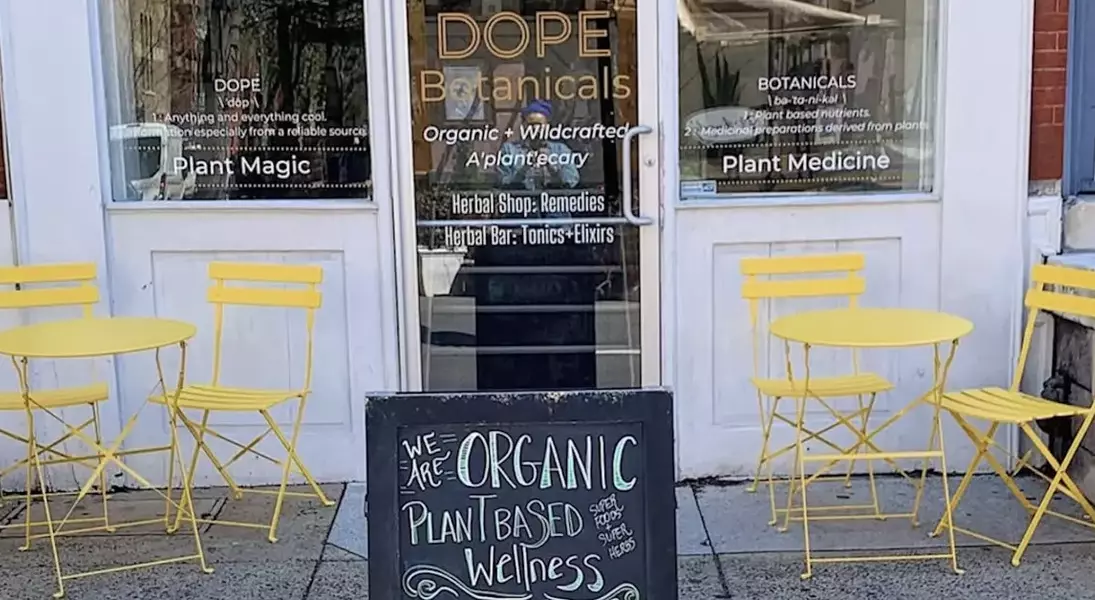 DOPE
\ˈdōp\
1: Anything and everything cool.
especially from a reliable source.
Plant Magic
DOPE
Botanicals
Organic + Wildcrafted
A'plant'ecary
Herbal Shop: Remedies
Herbal Bar: Tonics+Elixirs
BOTANICALS
\ bə-ˈta-ni-kəl \
1: Plant based nutrients.
2: Medicinal preparations derived from plants
Plant Medicine
WE ARE ORGANIC
PLANT BASED
SUPER FOODS + SUPER HERBS
Wellness